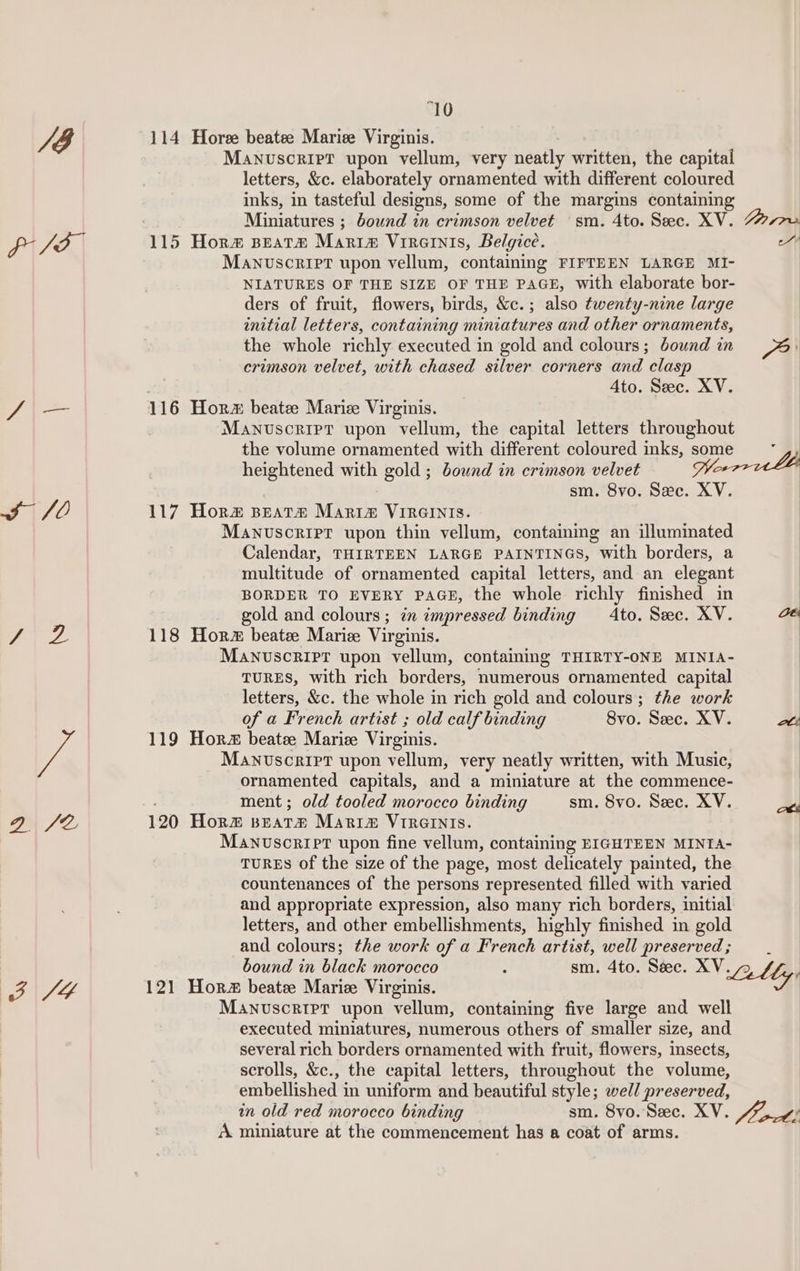 10
18 114 Horæ beatæ Mariæ Virginis.
Manuscript upon vellum, very neatly written, the capital
letters, &c. elaborately ornamented with different coloured
inks, in tasteful designs, some of the margins containing
Miniatures ; bound in crimson velvet sm. 4to. Sæc. XV.
115 Horæ beatæ Mariæ Virginis, Belgicè.
Manuscript upon vellum, containing FIFTEEN LARGE MI-
NIATURES OF THE SIZE OF THE PAGE, with elaborate bor-
ders of fruit, flowers, birds, &c. ; also twenty-nine large
initial letters, containing miniatures and other ornaments,
the whole richly executed in gold and colours; bound in
crimson velvet, with chased silver corners and clasp
4to. Sæc. XV.
1 — 116 Horæ beatæ Mariæ Virginis.
Manuscript upon vellum, the capital letters throughout
the volume ornamented with different coloured inks, some
heightened with gold ; bound in crimson velvet
sm. 8vo. Sæc. XV.
5 10 117 Horæ beatæ Mariæ Virginis.
Manuscript upon thin vellum, containing an illuminated
Calendar, THIRTEEN LARGE PAINTINGS, with borders, a
multitude of ornamented capital letters, and an elegant
BORDER TO EVERY PAGE, the whole richly finished in
gold and colours ; in impressed binding 4to. Sæc. XV.
1 2 118 Horæ beatæ Mariæ Virginis.
Manuscript upon vellum, containing THIRTY-ONE MINIA-
TURES, with rich borders, numerous ornamented capital
letters, &c. the whole in rich gold and colours ; the work
of a French artist ; old calf binding 8vo. Sæc. XV.
119 Horæ beatæ Mariæ Virginis.
Manuscript upon vellum, very neatly written, with Music,
ornamented capitals, and a miniature at the commence-
ment ; old tooled morocco binding sm. 8vo. Sæc. XV.
2 12 120 Horæ beatæ Mariæ Virginis.
Manuscript upon fine vellum, containing EIGHTEEN MINIA-
TURES of the size of the page, most delicately painted, the
countenances of the persons represented filled with varied
and appropriate expression, also many rich borders, initial
letters, and other embellishments, highly finished in gold
and colours; the work of a French artist, well preserved ;
bound in black morocco sm. 4to. Sæc. XV.
3 14 121 Horæ beatæ Mariæ Virginis.
Manuscript upon vellum, containing five large and well
executed miniatures, numerous others of smaller size, and
several rich borders ornamented with fruit, flowers, insects,
scrolls, &c., the capital letters, throughout the volume,
embellished in uniform and beautiful style; well preserved,
in old red morocco binding sm. 8vo. Sæc. XV.
A miniature at the commencement has a coat of arms.